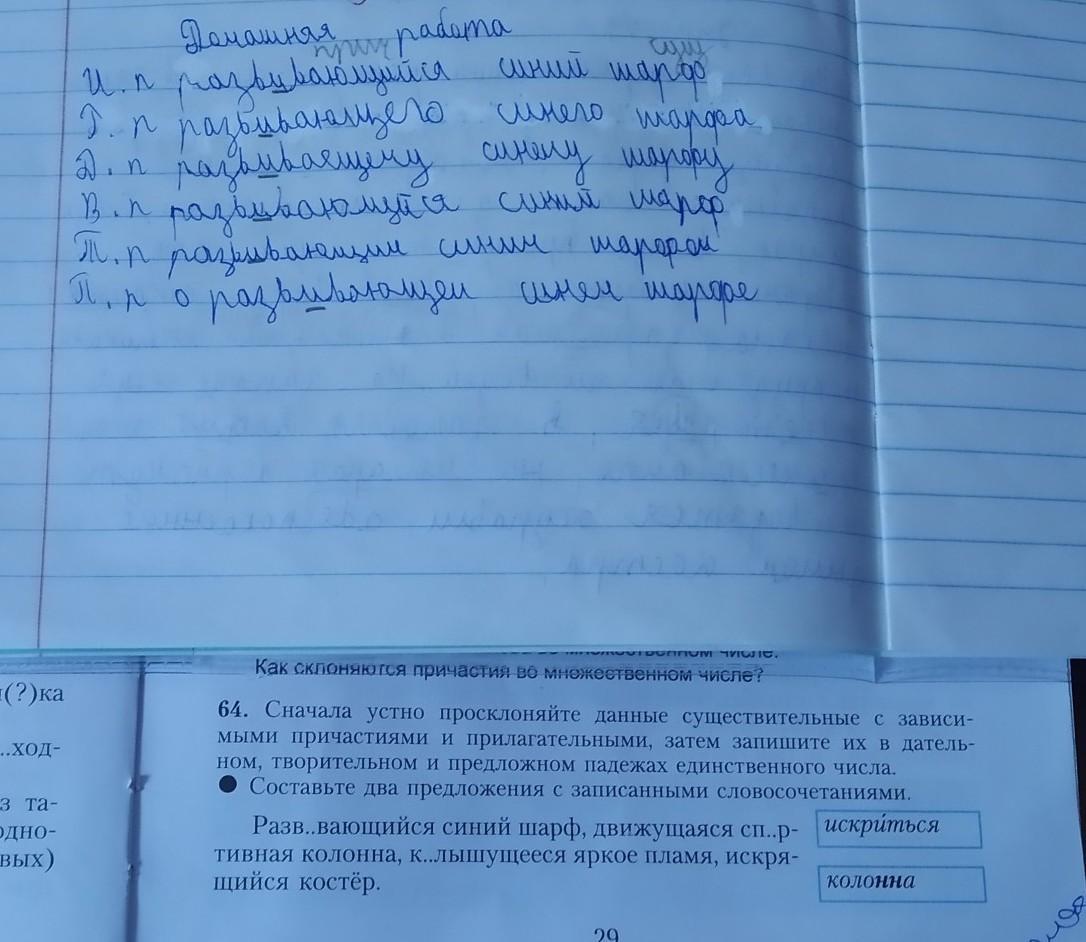 Домашняя работа
прич сущ
И. п развивающийся синий шарф
Г. п развивающего синего шарфа
Д. п развиваящему синему шарфу
В. п развивающийся синий шарф
Т. п развивающим синим шарфом
П. п о развивающем синем шарфе
множественном числе.
Как склоняются причастия во множественном числе?
(?)ка
64. Сначала устно просклоняйте данные существительные с зависи-
..ход-
мыми причастиями и прилагательными, затем запишите их в датель-
ном, творительном и предложном падежах единственного числа.
з та-
● Составьте два предложения с записанными словосочетаниями.
одно-
Разв..вающийся синий шарф, движущаяся сп..р-
искри́ться
вых)
тивная колонна, к..лышущееся яркое пламя, искря-
щийся костёр.
колонна
29